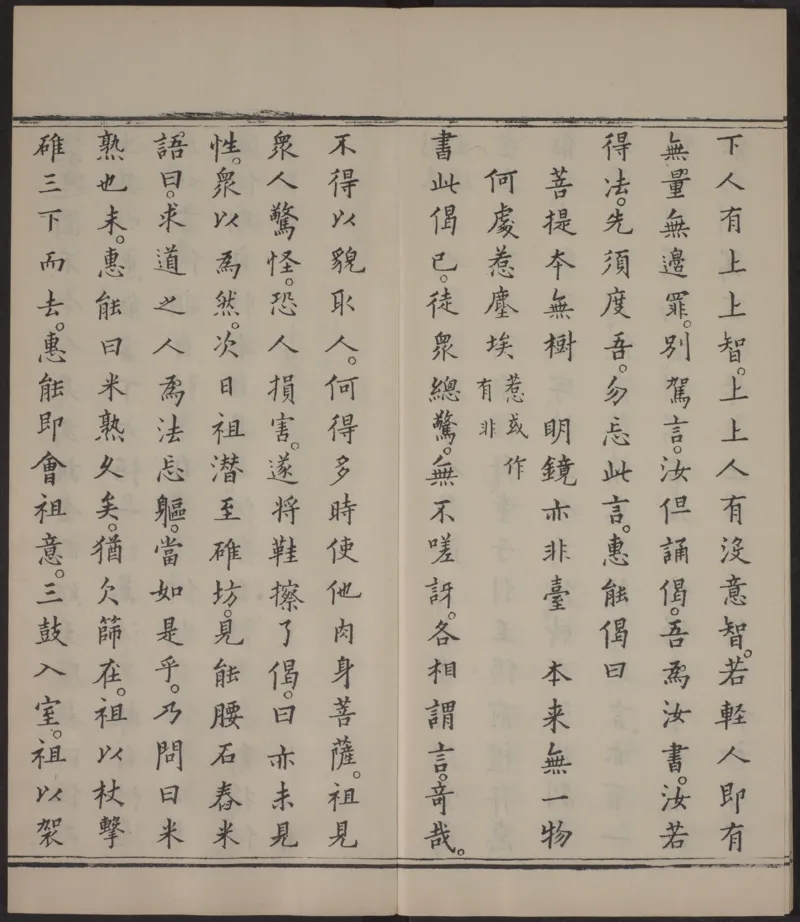 下人有上上智。上上人有沒意智。若輕人即有
無量無邊罪。別駕言。汝但誦偈。吾爲汝書。汝若
得法。先須度吾。勿忘此言。惠能偈曰
菩提本無樹 明鏡亦非臺 本来無一物
何處惹塵埃 惹或作有非
書此偈已。徒衆總驚。無不嗟訝。各相謂言。奇哉。
不得以貌取人。何得多時使他肉身菩薩。祖見
衆人驚怪。恐人損害。遂將鞋擦了偈。曰亦未見
性。衆以爲然。次日祖潜至碓坊。見能腰石舂米
語曰。求道之人爲法忘軀。當如是乎。乃問曰米
熟也未。惠能曰米熟久矣。猶欠篩在。祖以杖擊
碓三下而去。惠能即會祖意。三鼓入室。祖以袈